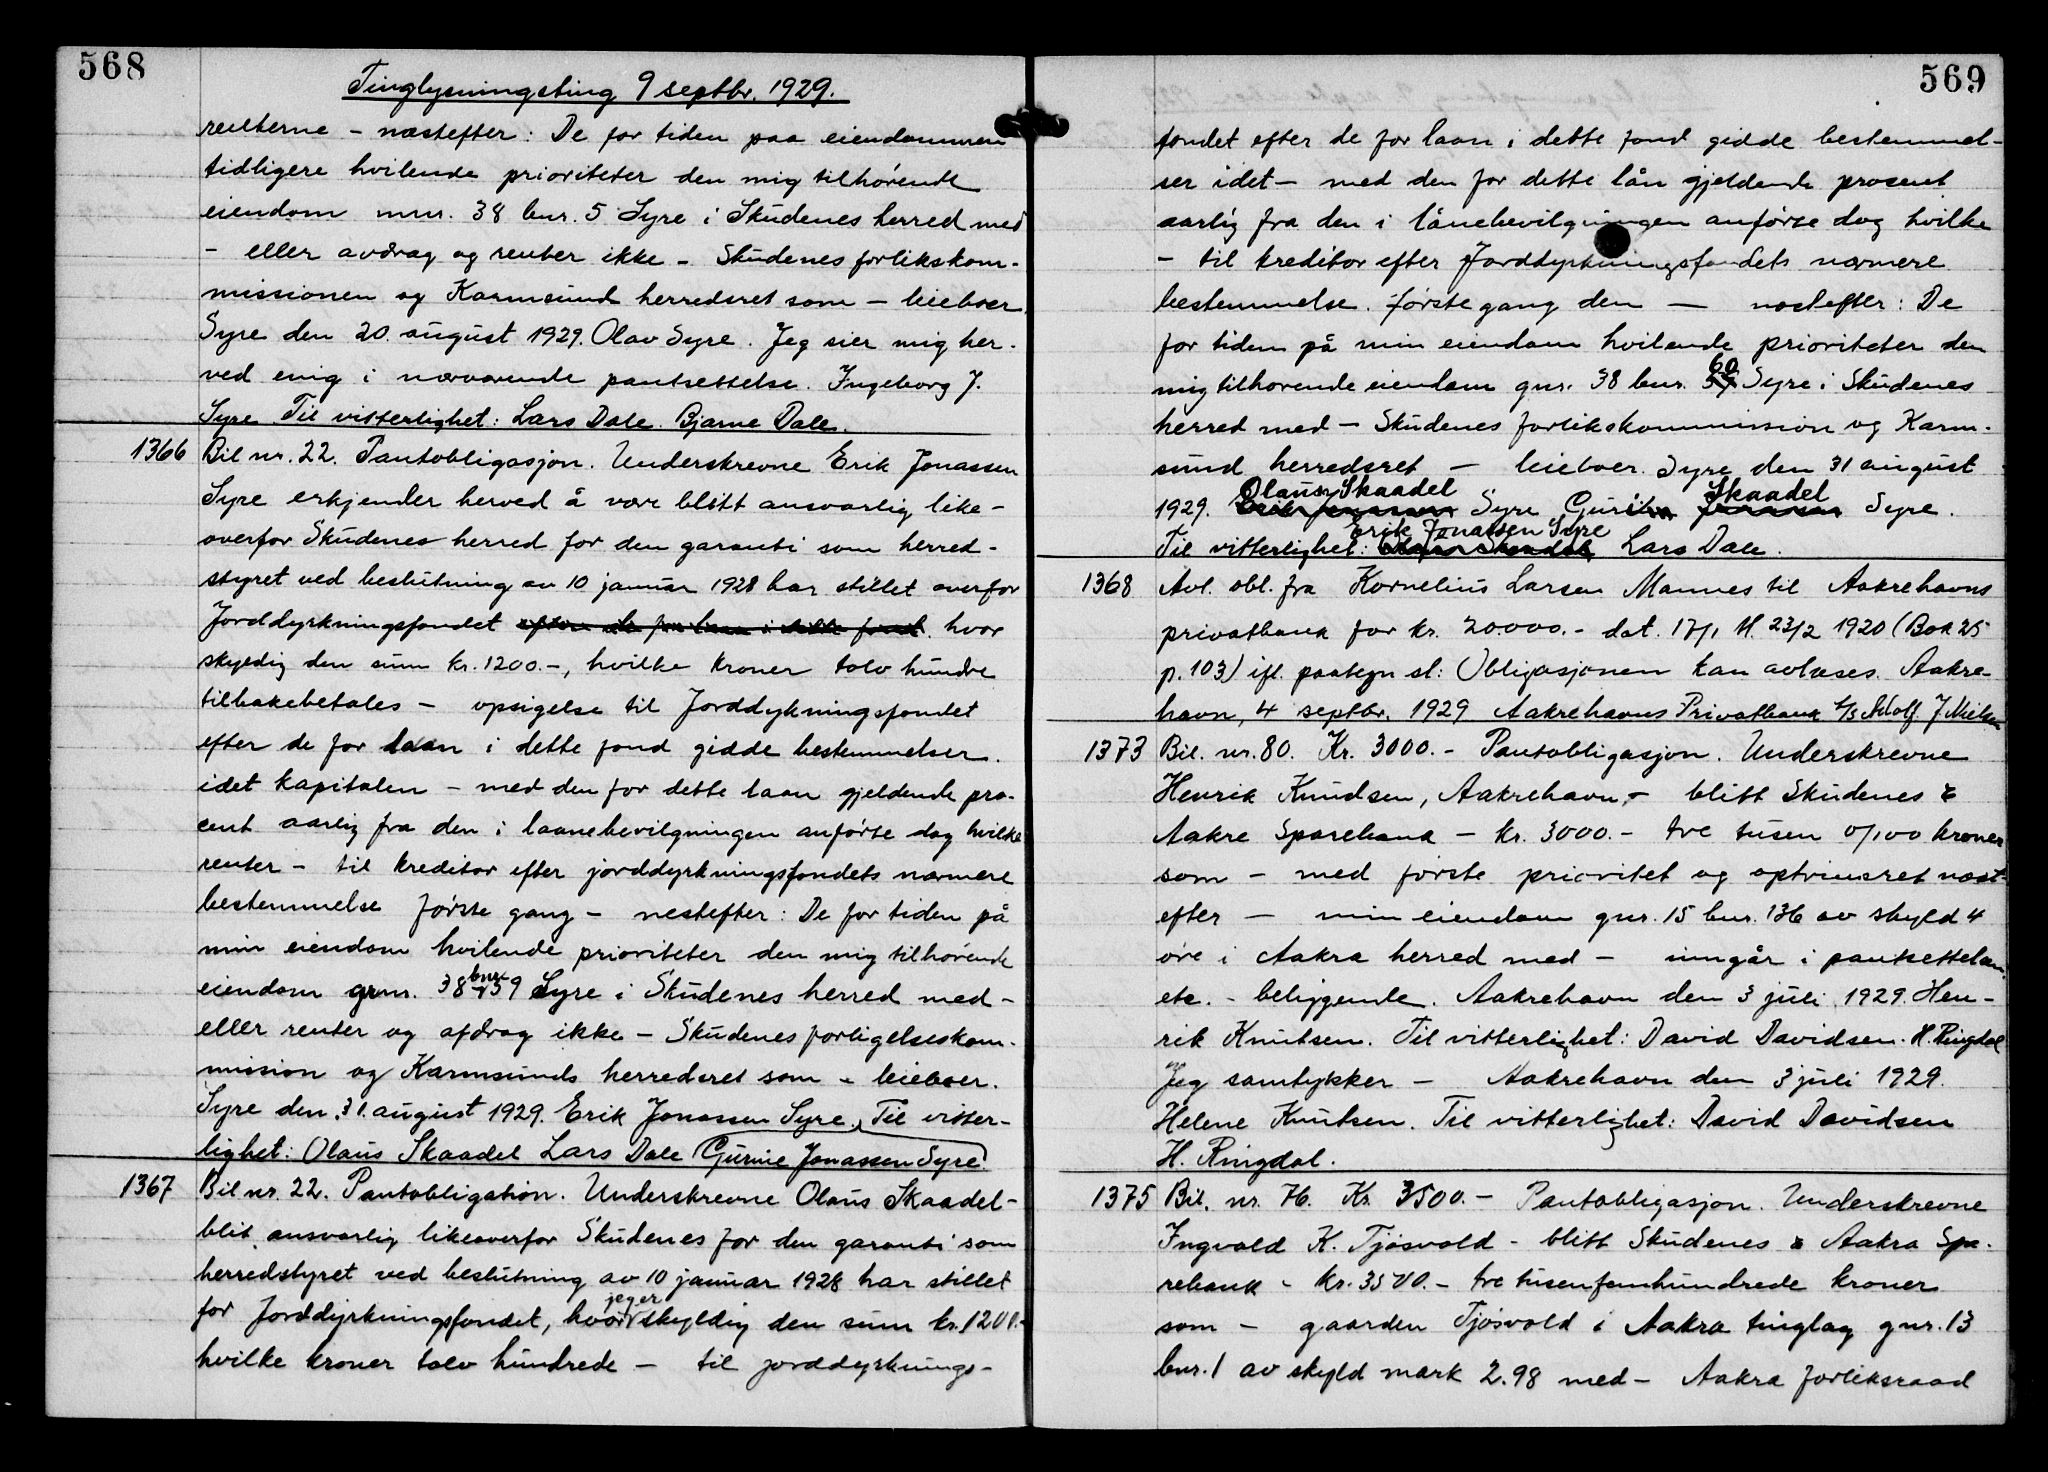 568
Tinglysningsting 9 septbr. 1929.
renterne - næstefter: De for tiden paa eiendommen
tidligere hvilende prioriteter den mig tilhørende
eiendom mnr. 38 bnr. 5 Syre i Skudenes herred med
- eller avdrag og renter ikke - Skudenes forlikskom-
missionen og Karmsund herredsret som - leieboer.
Syre den 20. august 1929. Olav Syre. Jeg sier mig her-
ved enig i nærværende pantsettelse. Ingeborg J.
Syre. Til vitterlighet: Lars Dale. Bjarne Dale.
1366 Bil nr. 22. Pantobligasjon. Underskrevne Erik Jonassen
Syre erkjender herved å være blitt ansvarlig like-
overfor Skudenes herred for den garanti som herred-
styret ved beslutning av 10 januar 1928 har stillet overfor
Jorddyrkningsfondet efter de for laan i dette fond. hvor
skyldig den sum kr. 1200.-, hvilke kroner tolv hundre
tilbakebetales - opsigelse til Jorddykningsfondet
efter de for laan i dette fond gidde bestemmelser.
idet kapitalen - med den for dette laan gjeldende pro-
cent aarlig fra den i laanebevilgningen anførte dag hvilke
renter - til kreditor efter jorddyrkningsfondets nærmere
bestemmelse første gang - nestefter: De for tiden på
min eiendom hvilende prioriteter den mig tilhørende
eiendom gnr. 38 bnr. 59 Syre i Skudenes herred med -
eller renter og afdrag ikke - Skudenes forligelseskom-
mission og Karmsunds herredsret som - leieboer.
Syre den 31. august 1929. Erik Jonassen Syre. Til vitter-
lighet: Olaus Skaadel Lars Dale (Gurine Jonassen Syre.
1367 Bil nr. 22. Pantobligation. Underskrevne Olaus Skaadel -
blit ansvarlig likeoverfor Skudenes for den garanti som
herredstyret ved beslutning av 10 januar 1928 har stillet
for Jorddyrkningsfondet, hvor jeg er skyldig den sum kr. 1200.-
hvilke kroner tolv hundrede - til jorddyrknings-
569
fondet efter de for laan i dette fond gidde bestemmel-
ser idet - med den for dette lån gjeldende prosent
aarlig fra den i lånebevilgningen anførte dag hvilke
- til kreditor efter Jorddyrkningsfondets nærmere
bestemmelse. første gang den - næstefter: De
for tiden på min eiendom hvilende prioriteter den
mig tilhørende eiendom gnr. 38 bnr. 60 Syre i Skudenes
herred med - Skudenes forlikskommission og Karm-
sund herredsret - leieboer. Syre den 31 august
1929. Olaus Skaadel Syre Gurine Skaadel Syre.
Til vitterlighet: Erik Jonassen Syre Lars Dale.
1368 Avl. obl. fra Kornelius Larsen Mannes til Aakrehavns
privatbank for kr. 20.000.- dat. 17/1 tl. 23/2 1920 (Bok 25
p. 103) ifl. paategn sl: Obligasjonen kan avlæses. Aakre-
havn, 4 septbr. 1929 Aakrehavns Privatbank A/S Adolf. J Nielsen
1373 Bil. nr. 80. Kr. 3000.- Pantobligasjon. Underskrevne
Henrik Knudsen, Aakrehavn,- blitt Skudenes &
Aakre Sparebank - kr. 3000.- tre tusen 0/100 kroner
som - med første prioritet og optrinsret næst-
efter - min eiendom gnr. 15 bnr. 136 av skyld 4
øre i Aakra herred med - inngår i pantsettelsen.
etc. - beliggende. Aakrehavn den 3 juli 1929. Hen-
rik Knutsen. Til vitterlighet: David Davidsen. H. Ringdal
Jeg samtykker - Aakrehavn den 3 juli 1929.
Helene Knutsen. Til vitterlighet: David Davidsen
H. Ringdal.
1375 Bil. nr. 76. Kr. 3500.- Pantobligasjon. Underskrevne
Ingvald K. Tjøsvold - blitt Skudenes & Aakra Spa-
rebank - kr. 3500.- tre tusenfemhundrede kroner
som - gaarden Tjøsvold i Aakra tinglag gnr. 13
bnr. 1 av skyld mark 2.98 med - Aakra forliksraad